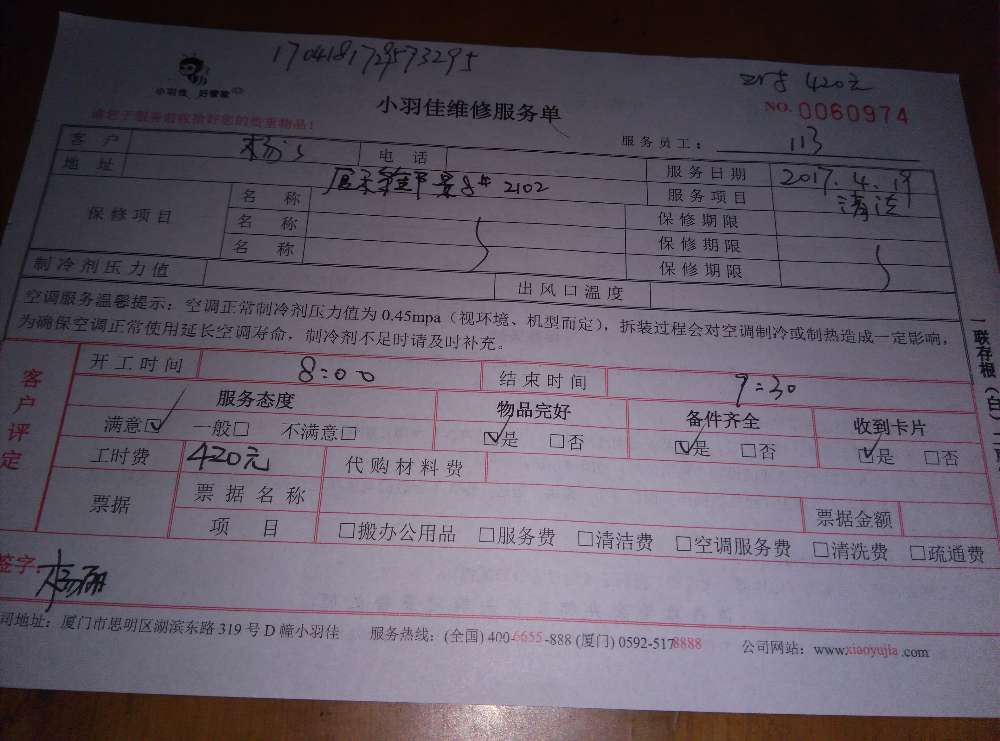 170418179573295
420元
小羽佳 好管家
小羽佳维修服务单
NO. 0060974
请您于服务前收拾好您的贵重物品!
服务员工: 113
客户 杨 电话 服务日期 2017.4.19
地址 景8# 2102 服务项目 清洁
保修项目 名称 保修期限
名称 保修期限
名称 保修期限
制冷剂压力值 出风口温度
空调服务温馨提示:空调正常制冷剂压力值为 0.45mpa(视环境、机型而定),拆装过程会对空调制冷或制热造成一定影响,
为确保空调正常使用延长空调寿命,制冷剂不足时请及时补充。
一联存根(白)
客户评定
开工时间 8:00 结束时间 9:30
服务态度 物品完好 备件齐全 收到卡片
满意☑ 一般□ 不满意□ ☑是 □否 ☑是 □否 ☑是 □否
工时费 420元 代购材料费
票据 票据名称 票据金额
项目 □搬办公用品 □服务费 □清洁费 □空调服务费 □清洗费 □疏通费
签字: 杨丽
司地址:厦门市思明区湖滨东路 319 号 D 幢小羽佳 服务热线:(全国) 400-6655-888 (厦门) 0592-5178888 公司网站:www.xiaoyujia.com